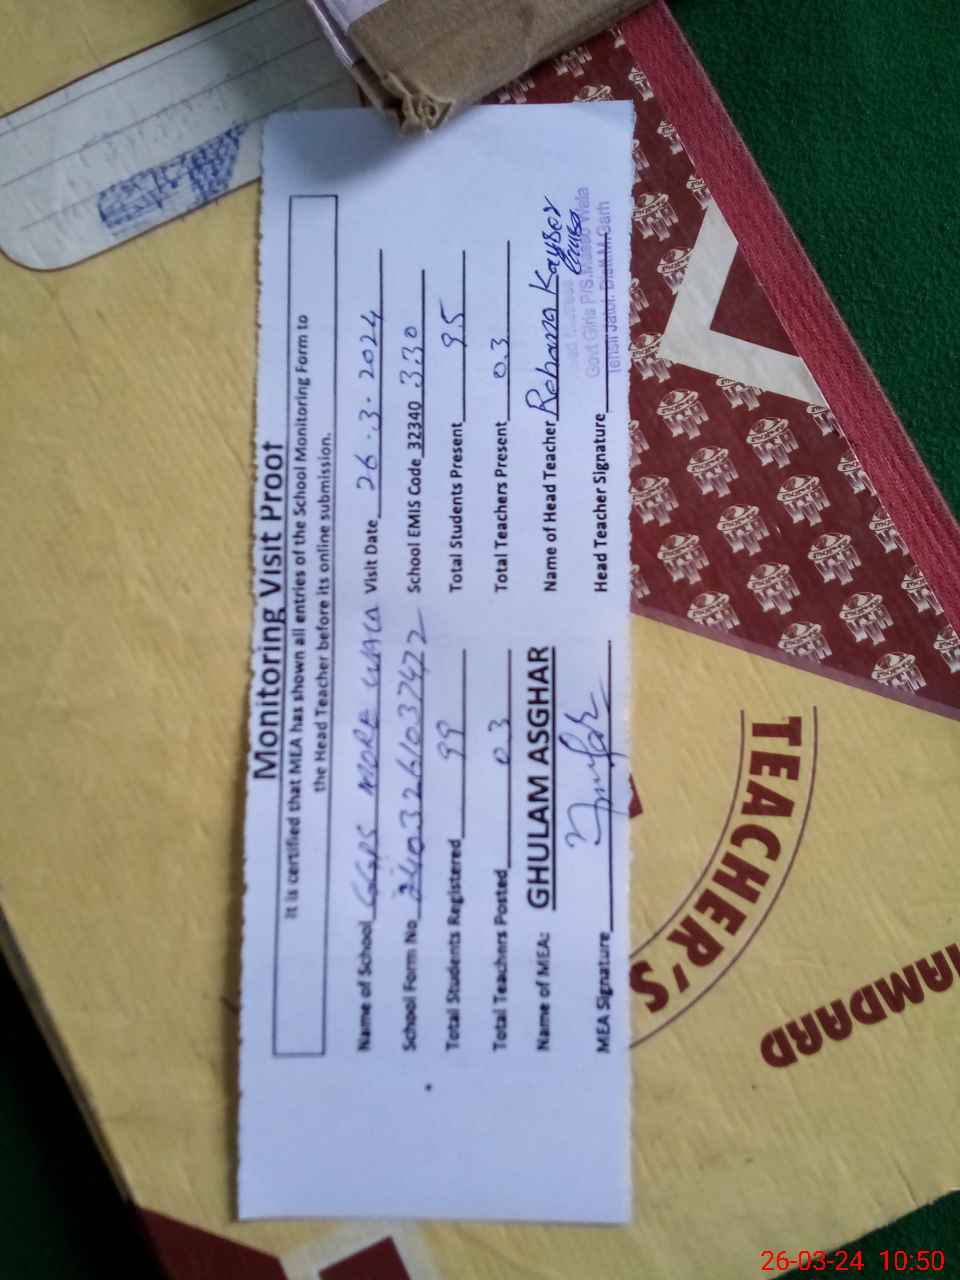 Monitoring Visit Proof
It is certified that MEA has shown all entries of the School Monitoring Form to
the Head Teacher before its online submission.
Name of School GGPS MORE WALA Visit Date 26.3.2024
School Form No 2403261037422 School EMIS Code 32340 330
Total Students Registered 99 Total Students Present 95
Total Teachers Posted 03 Total Teachers Present 03
Name of MEA: GHULAM ASGHAR Name of Head Teacher Rehana Kayser
MEA Signature Head Teacher Signature
Govt Girls P/S. Wala
Tehsil Jatoi. Distt.M.Garh
TEACHER'S
HAMDARD
26-03-24 10:50